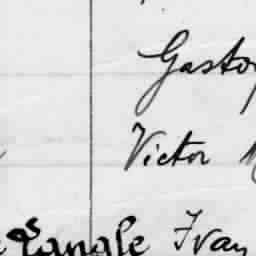 Gaston
Victor
Langle Ivan